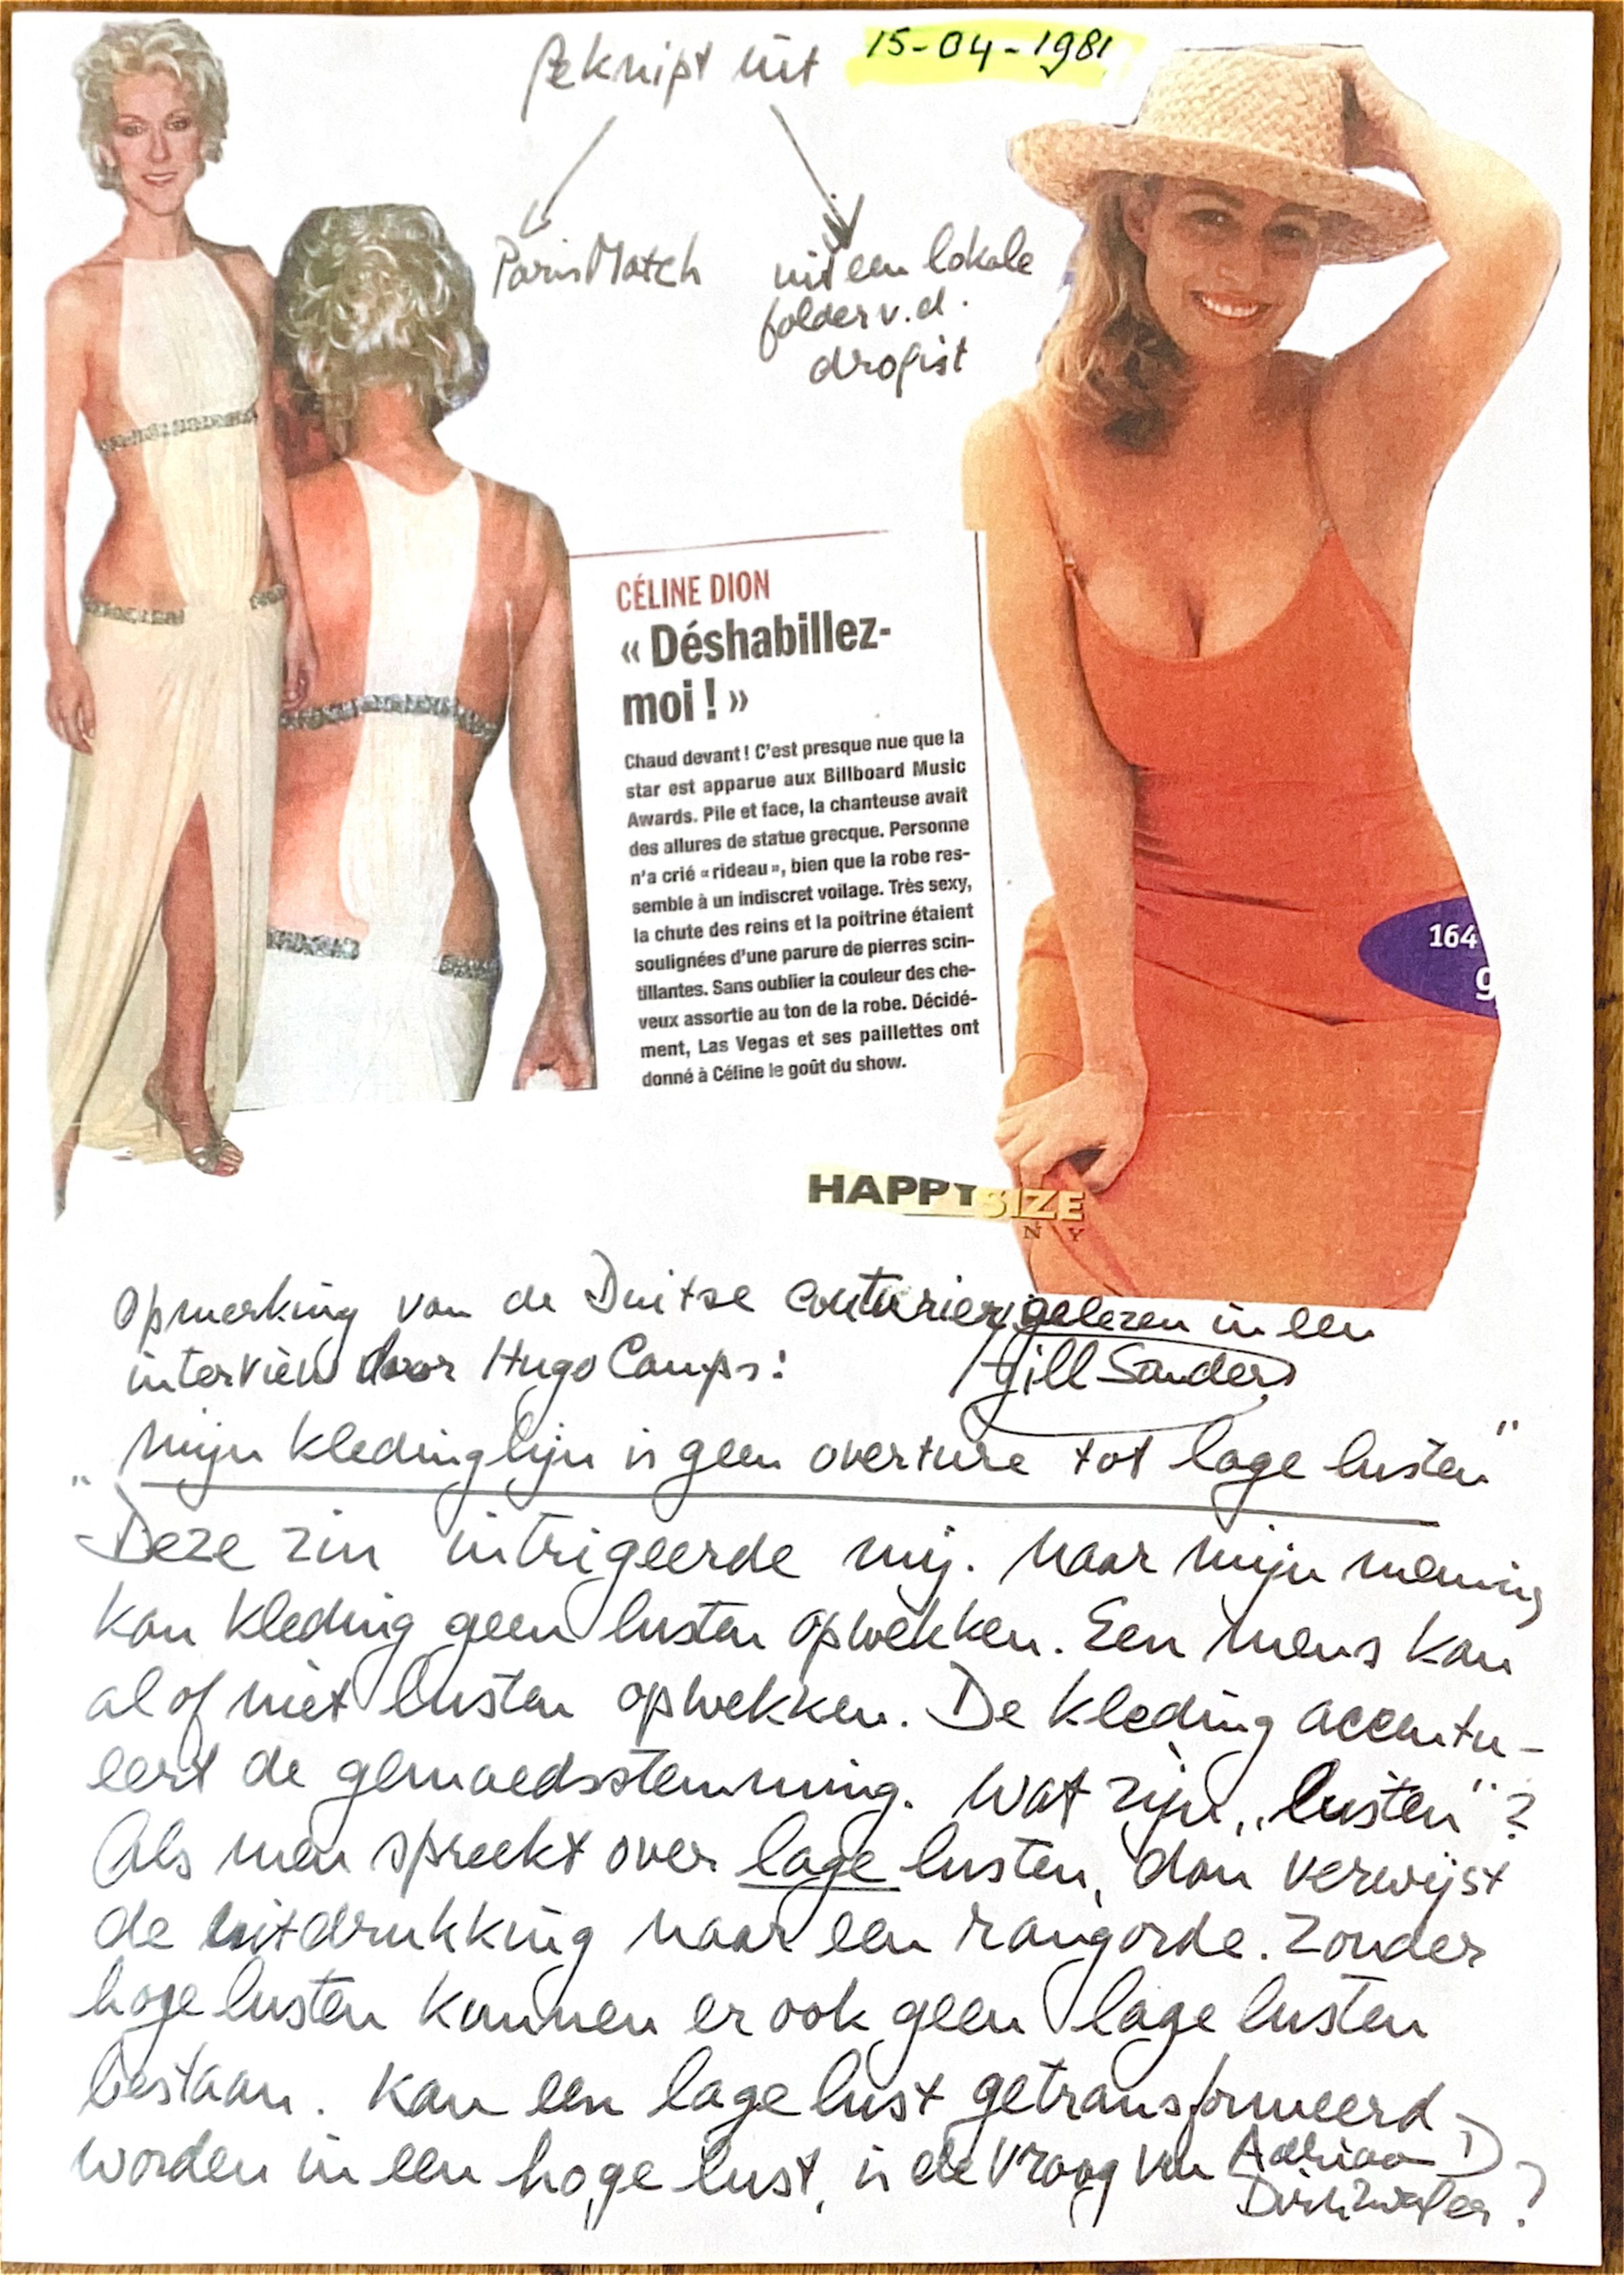 Geknipt uit 15-04-1981
Paris Match
uit een lokale
folder v.d.
drogist
CÉLINE DION
« Déshabillez-
moi ! »
Chaud devant ! C'est presque nue que la
star est apparue aux Billboard Music
Awards. Pile et face, la chanteuse avait
des allures de statue grecque. Personne
n'a crié « rideau », bien que la robe res-
semble à un indiscret voilage. Très sexy,
la chute des reins et la poitrine étaient
soulignées d'une parure de pierres scin-
tillantes. Sans oublier la couleur des che-
veux assortie au ton de la robe. Décidé-
ment, Las Vegas et ses paillettes ont
donné à Céline le goût du show.
164
g
HAPPY SIZE
N Y
Opmerking van de Duitse couturier gelezen in een
interview door Hugo Camps: Jill Sanders
"mijn kledinglijn is geen overture tot lage lusten"
Deze zin intrigeerde mij. Naar mijn mening
kan kleding geen lusten opwekken. Een mens kan
al of niet lusten opwekken. De kleding accentu-
eert de gemoedsstemming. Wat zijn „lusten"?
Als men spreekt over lage lusten, dan verwijst
de uitdrukking naar een rangorde. Zonder
hoge lusten kunnen er ook geen lage lusten
bestaan. Kan een lage lust getransformeerd
worden in een hoge lust, is de vraag van Adriaan D
?